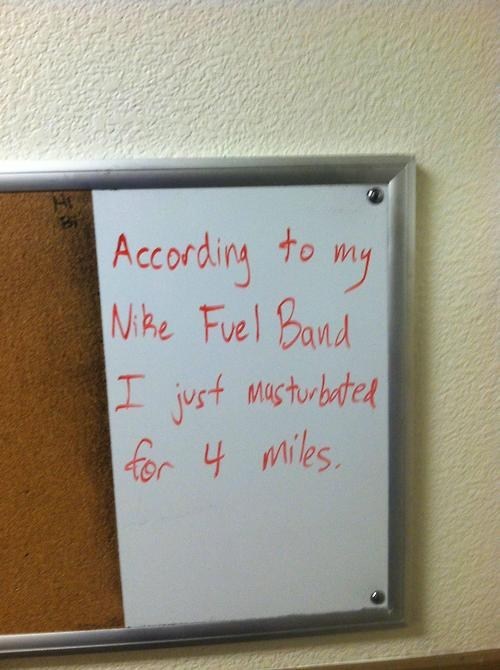 According to my
Nike Fuel Band
I just masturbated
for 4 miles.